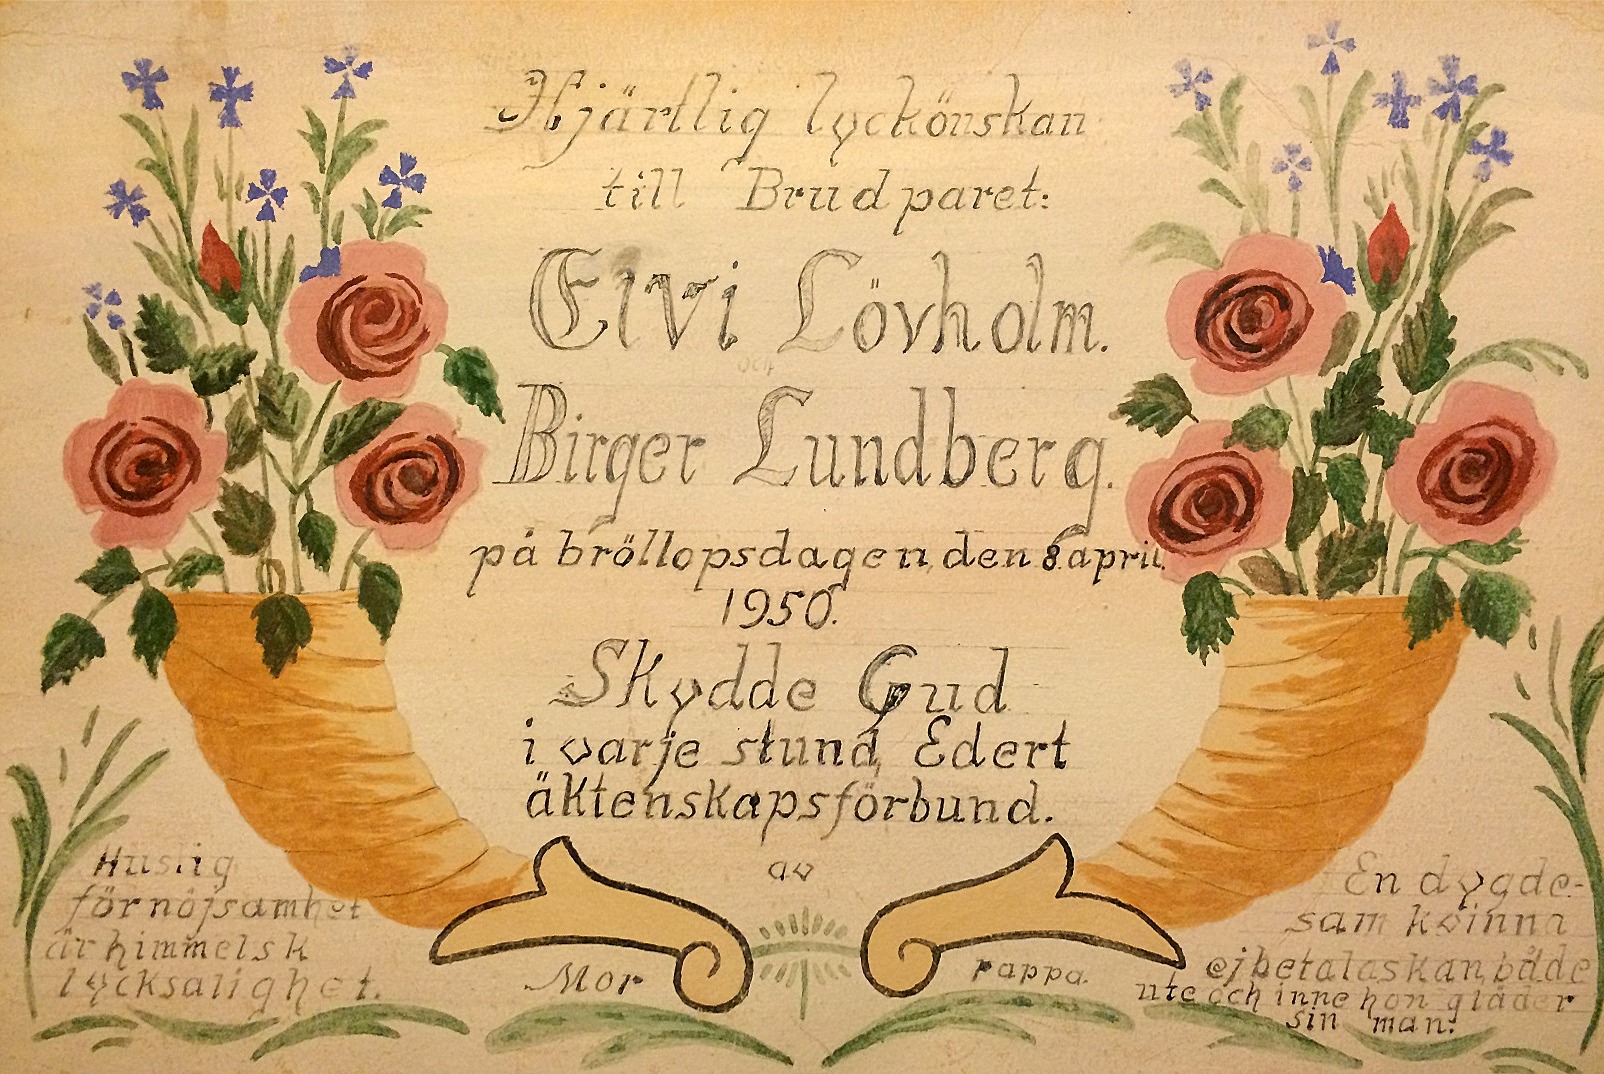 Hjärtlig lyckönskan
till Brudparet:
Elvi Lövholm.
och
Birger Lundberg.
på bröllopsdagen, den 8 april.
1950.
Skydde Gud
i varje stund, Edert
äktenskapsförbund.
av
Mor
pappa.
Huslig
förnöjsamhet
är himmelsk
lycksalighet.
En dygde-
sam kvinna
ej betalas kan, både
ute och inne hon gläder
sin man.